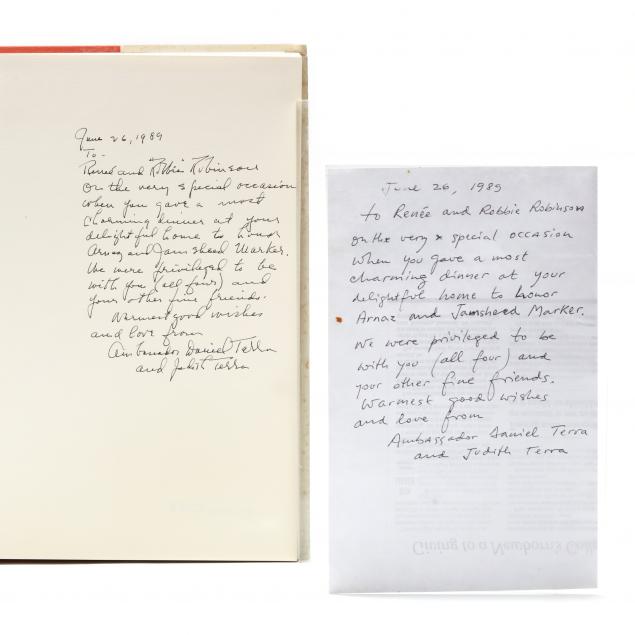 June 26, 1989
To -
Reneé and Robbie Robinson
on the very special occasion
when you gave a most
charming dinner at your
delightful home to honor
Arnaz and Jamsheed Marker.
We were privileged to be
with you (all four) and
your other fine friends.
Warmest good wishes
and love from
Ambassador Daniel Terra
and Judith Terra
June 26, 1989
to Renée and Robbie Robinson
on the very x special occasion
when you gave a most
charming dinner at your
delightful home to honor
Arnaz and Jamsheed Marker.
We were privileged to be
with you (all four) and
your other fine friends.
Warmest good wishes
and love from
Ambassador Daniel Terra
and Judith Terra
Giving to a Newborn's